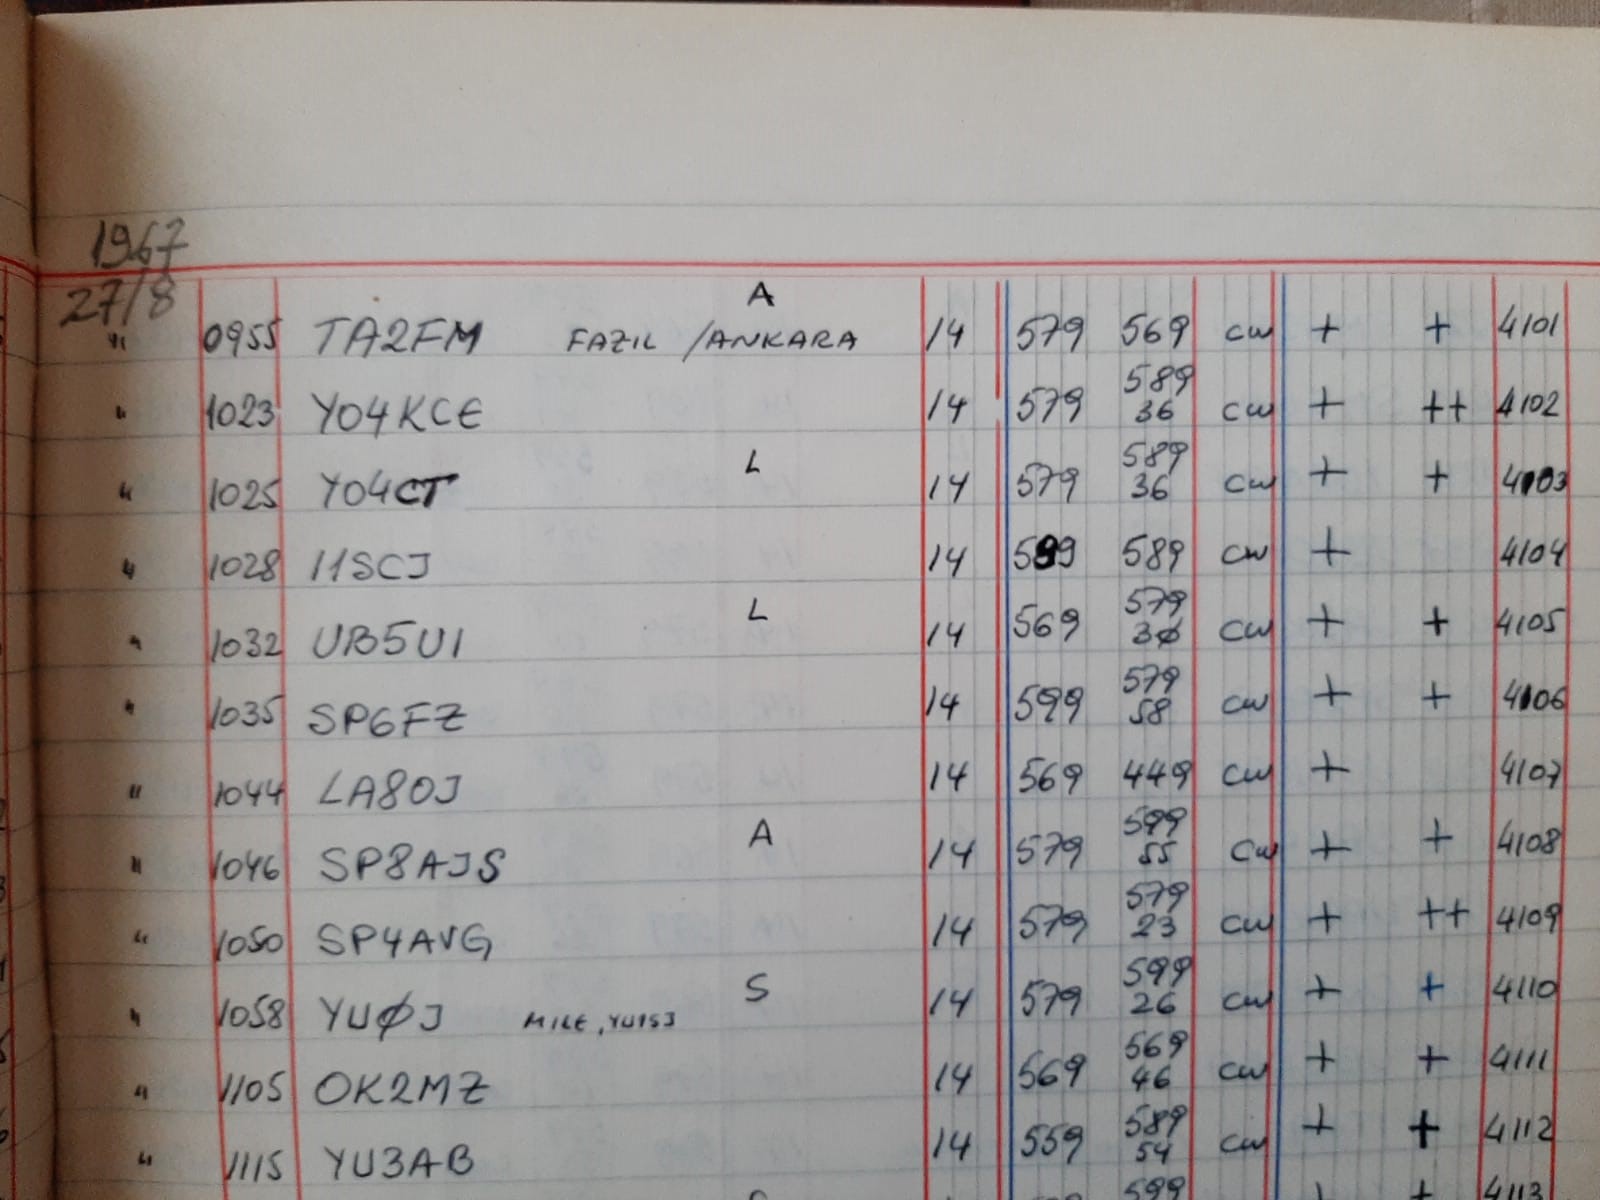 1967
27/8
A
" 0955 TA2FM FAZIL /ANKARA 14 579 569 CW + + 4101
589
" 1023 YO4KCE 14 579 36 CW + ++ 4102
L 589
" 1025 YO4CT 14 579 36 CW + + 4103
" 1028 I1SCJ 14 599 589 CW + 4104
L 579
" 1032 UB5UI 14 569 30 CW + + 4105
579
" 1035 SP6FZ 14 599 58 CW + + 4106
" 1044 LA8OJ 14 569 449 CW + 4107
A 599
" 1046 SP8AJS 14 579 55 CW + + 4108
579
" 1050 SP4AVG 14 579 23 CW + ++ 4109
S 599
" 1058 YUØJ MILE, YU1SJ 14 579 26 CW + + 4110
569
" 1105 OK2MZ 14 569 46 CW + + 4111
589
" 1115 YU3AB 14 559 54 CW + + 4112
599 4113